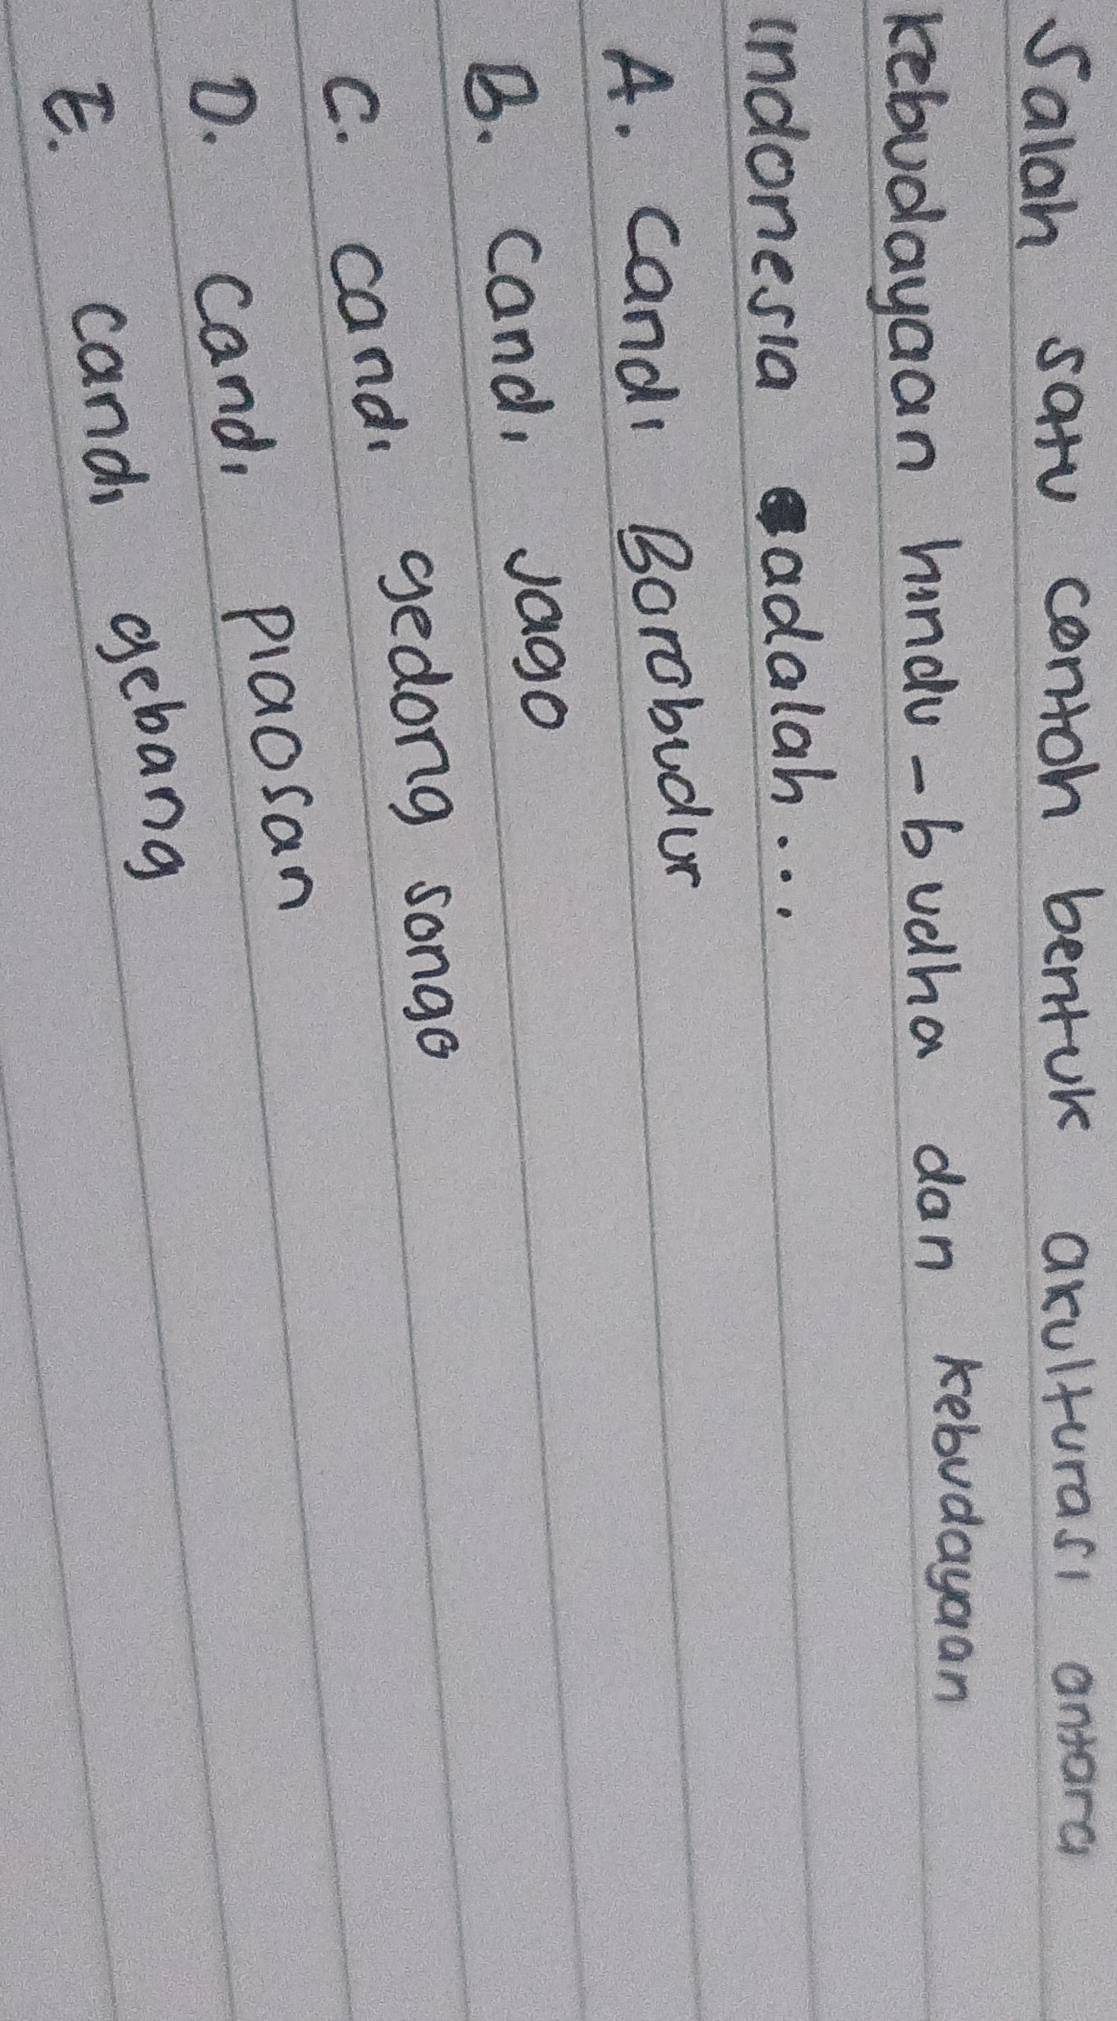 Salah satu contoh bentuk akulturasi antara
kebudayaan hindu - budha dan kebudayaan
indonesia adalah...
A. candi Borobudur
B. candi Jago
C. candi gedong songo
D. candi plaosan
E. candi gebang